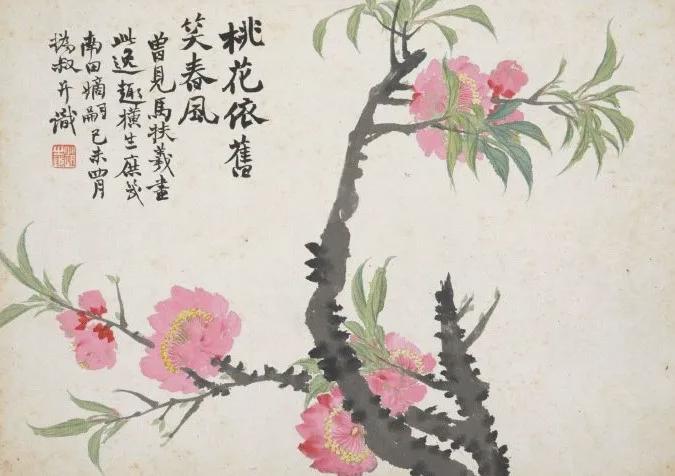 桃花依舊
笑春風
曾見馬扶羲畫
此逸趣橫生庶幾
南田嫡嗣己未四月
撝叔并識